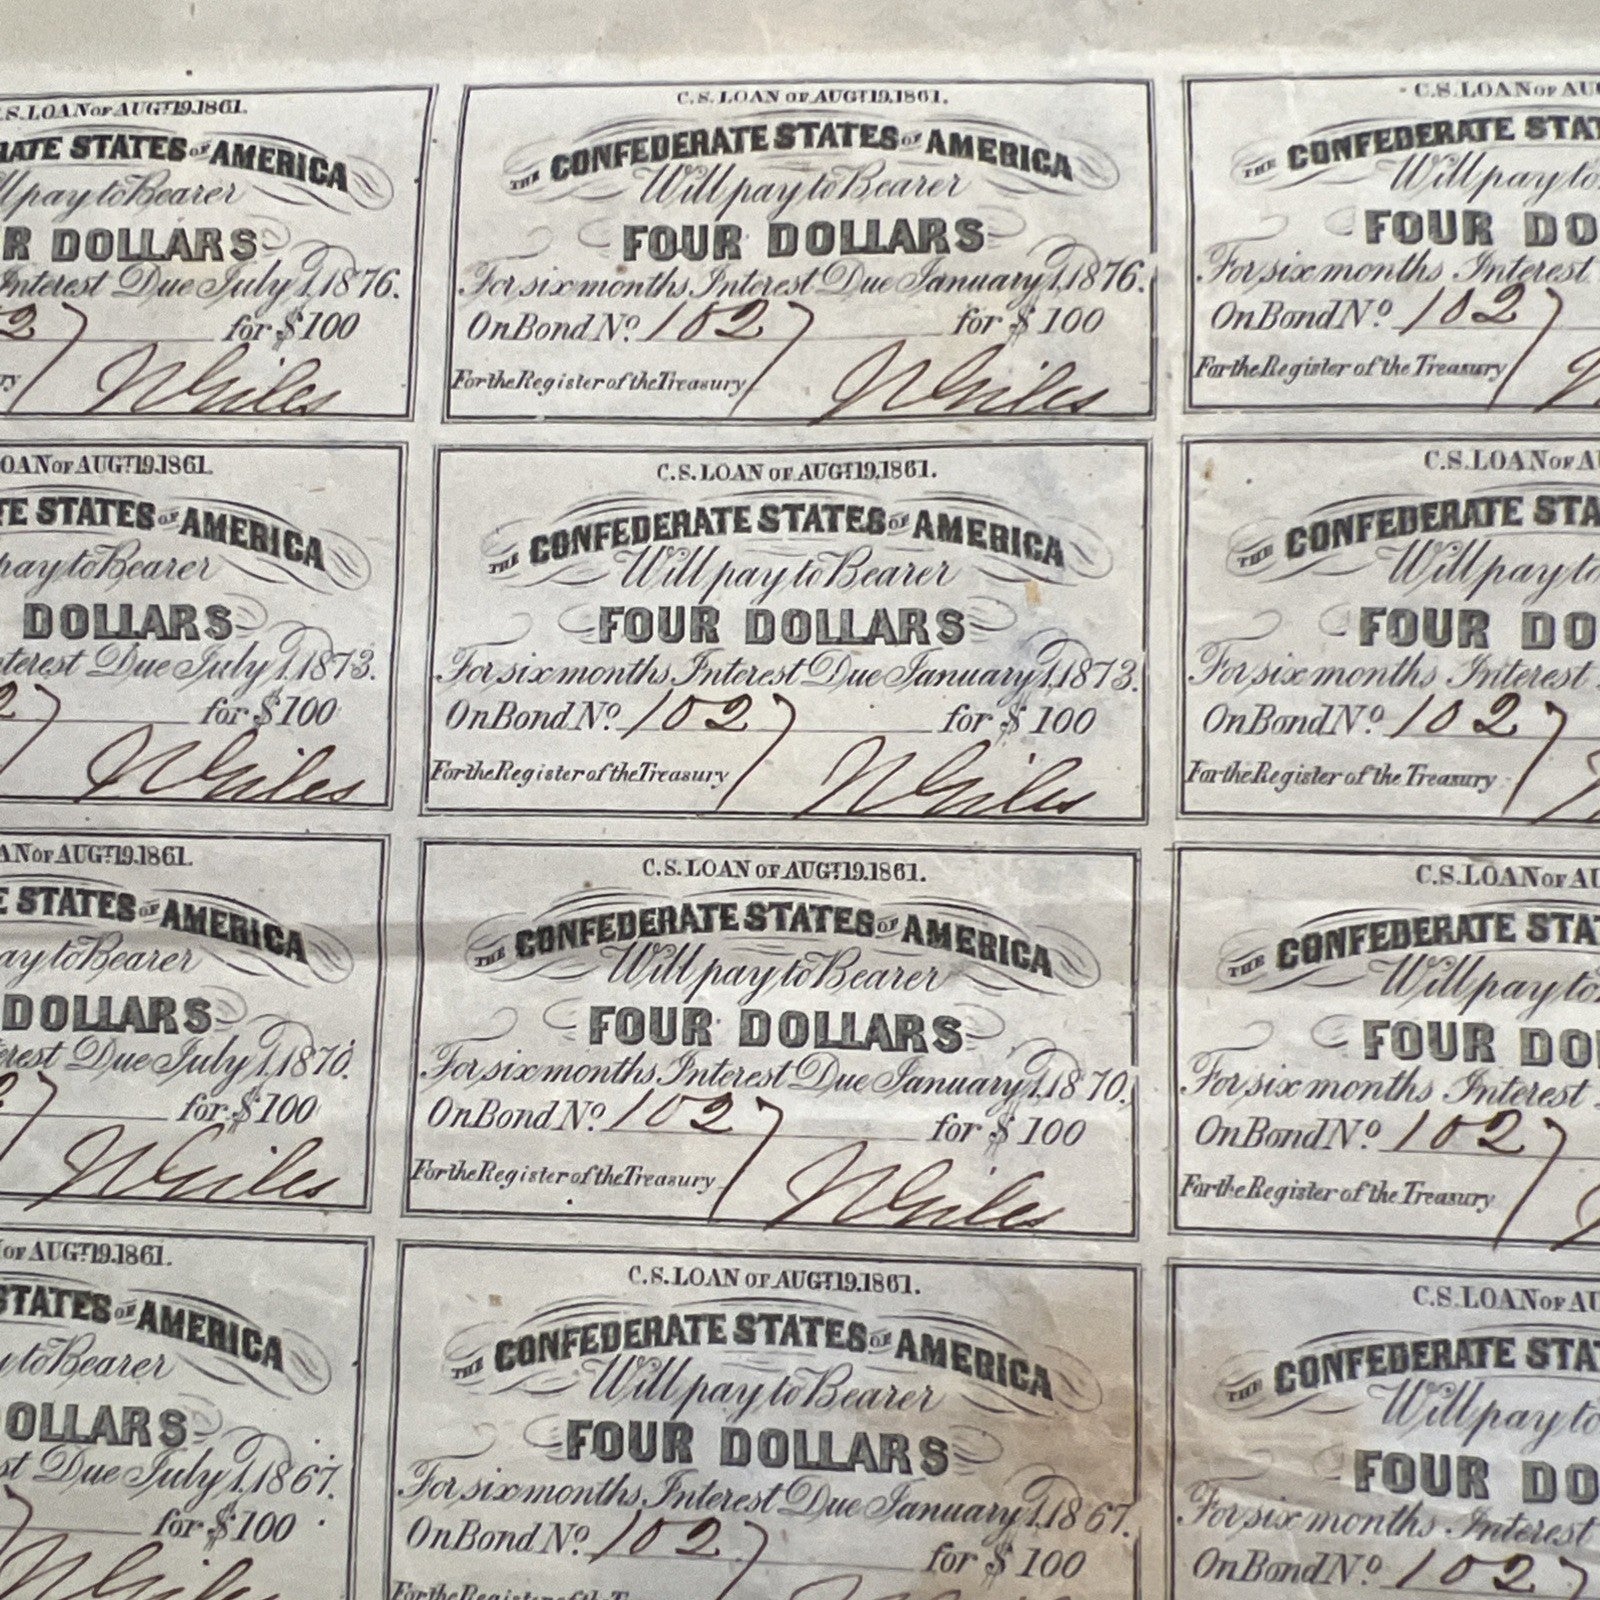 .S. LOAN OF AUGT. 19. 1861.
RATE STATES OF AMERICA
ll pay to Bearer
R DOLLARS
Interest Due July 1, 1876.
27 for $100
ry
C.S. LOAN OF AUGT. 19. 1861.
THE CONFEDERATE STATES OF AMERICA
Will pay to Bearer
FOUR DOLLARS
For six months Interest Due January 1, 1876.
On Bond No. 1027 for $100
For the Register of the Treasury
C.S. LOAN OF AU
THE CONFEDERATE STAT
Will pay to
FOUR DO
For six months Interest
On Bond No. 1027
For the Register of the Treasury
OAN OF AUGT. 19. 1861.
TE STATES OF AMERICA
pay to Bearer
DOLLARS
terest Due July 1, 1873.
27 for $100
C.S. LOAN OF AUGT. 19. 1861.
THE CONFEDERATE STATES OF AMERICA
Will pay to Bearer
FOUR DOLLARS
For six months Interest Due January 1, 1873.
On Bond No. 1027 for $100
For the Register of the Treasury
C.S. LOAN OF AU
THE CONFEDERATE STA
Will pay to
FOUR DO
For six months Interest
On Bond No. 1027
For the Register of the Treasury
AN OF AUGT. 19. 1861.
E STATES OF AMERICA
ay to Bearer
DOLLARS
erest Due July 1, 1870.
27 for $100
C.S. LOAN OF AUGT. 19. 1861.
THE CONFEDERATE STATES OF AMERICA
Will pay to Bearer
FOUR DOLLARS
For six months Interest Due January 1, 1870.
On Bond No. 1027 for $100
For the Register of the Treasury
C.S. LOAN OF AU
THE CONFEDERATE STAT
Will pay to
FOUR DO
For six months Interest
On Bond No. 1027
For the Register of the Treasury
OF AUGT. 19. 1861.
STATES OF AMERICA
y to Bearer
OLLARS
st Due July 1, 1867.
7 for $100
C.S. LOAN OF AUGT. 19. 1861.
THE CONFEDERATE STATES OF AMERICA
Will pay to Bearer
FOUR DOLLARS
For six months Interest Due January 1, 1867.
On Bond No. 1027 for $100
For the Register of the T
C.S. LOAN OF AU
THE CONFEDERATE STA
Will pay to
FOUR DO
For six months Interest
On Bond No. 1027